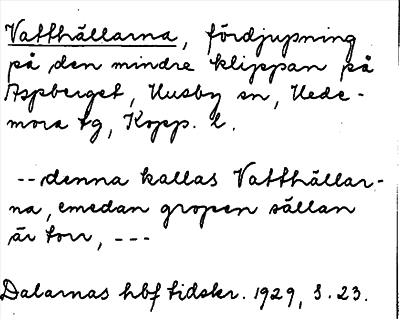 Vatthällarna, fördjupning
på den mindre klippan på
Aspberget, Husby sn, Hede-
mora tg, Kopp. l.
--denna kallas Vatthällar-
na, emedan gropen sällan
är torr, ---
Dalarnas hbf tidskr. 1929, s. 23.